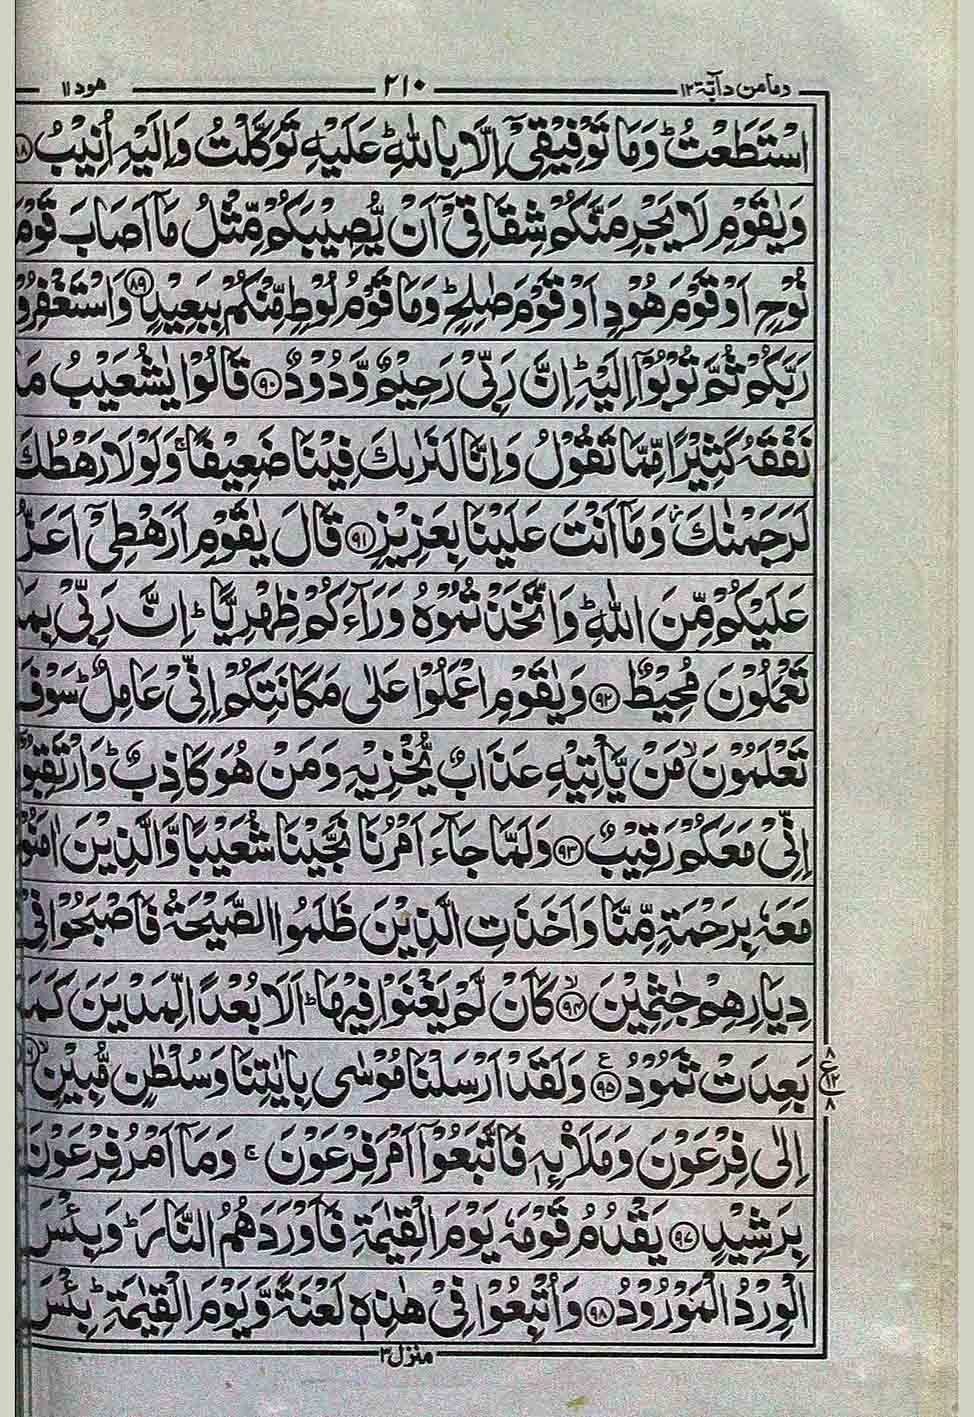 ومامن دآبة ۱۲ ۲۱۰ هود ۱۱
اسْتَطَعْتُ ؕ وَمَا تَوْفِيْقِيْۤ اِلَّا بِاللّٰهِ ؕ عَلَيْهِ تَوَكَّلْتُ وَاِلَيْهِ اُنِيْبُ
وَيٰقَوْمِ لَا يَجْرِمَنَّكُمْ شِقَاقِيْۤ اَنْ يُّصِيْبَكُمْ مِّثْلُ مَاۤ اَصَابَ قَوْمَ
نُوْحٍ اَوْ قَوْمَ هُوْدٍ اَوْ قَوْمَ صٰلِحٍ ؕ وَمَا قَوْمُ لُوْطٍ مِّنْكُمْ بِبَعِيْدٍ ﴿۸۹﴾ وَاسْتَغْفِرُوْ
رَبَّكُمْ ثُمَّ تُوْبُوْۤا اِلَيْهِ ؕ اِنَّ رَبِّيْ رَحِيْمٌ وَّدُوْدٌ ﴿۹۰﴾ قَالُوْا يٰشُعَيْبُ مَا
نَفْقَهُ كَثِيْرًا مِّمَّا تَقُوْلُ وَاِنَّا لَنَرٰىكَ فِيْنَا ضَعِيْفًا ۚ وَلَوْلَا رَهْطُكَ
لَرَجَمْنٰكَ ؗ وَمَاۤ اَنْتَ عَلَيْنَا بِعَزِيْزٍ ﴿۹۱﴾ قَالَ يٰقَوْمِ اَرَهْطِيْۤ اَعَزُّ
عَلَيْكُمْ مِّنَ اللّٰهِ ؕ وَاتَّخَذْتُمُوْهُ وَرَآءَكُمْ ظِهْرِيًّا ؕ اِنَّ رَبِّيْ بِمَا
تَعْمَلُوْنَ مُحِيْطٌ ﴿۹۲﴾ وَيٰقَوْمِ اعْمَلُوْا عَلٰى مَكَانَتِكُمْ اِنِّيْ عَامِلٌ ؕ سَوْفَ
تَعْلَمُوْنَ ۙ مَنْ يَّاْتِيْهِ عَذَابٌ يُّخْزِيْهِ وَمَنْ هُوَ كَاذِبٌ ؕ وَارْتَقِبُوْۤ
اِنِّيْ مَعَكُمْ رَقِيْبٌ ﴿۹۳﴾ وَلَمَّا جَآءَ اَمْرُنَا نَجَّيْنَا شُعَيْبًا وَّالَّذِيْنَ اٰمَنُوْ
مَعَهٗ بِرَحْمَةٍ مِّنَّا وَاَخَذَتِ الَّذِيْنَ ظَلَمُوا الصَّيْحَةُ فَاَصْبَحُوْا فِيْ
دِيَارِهِمْ جٰثِمِيْنَ ﴿۹۴﴾ۙ كَاَنْ لَّمْ يَغْنَوْا فِيْهَا ؕ اَلَا بُعْدًا لِّمَدْيَنَ كَمَا
بَعِدَتْ ثَمُوْدُ ﴿۹۵﴾ وَلَقَدْ اَرْسَلْنَا مُوْسٰى بِاٰيٰتِنَا وَسُلْطٰنٍ مُّبِيْنٍ
۸ ع ۱۲ ۸
اِلٰى فِرْعَوْنَ وَمَلَا۟ئِهٖ فَاتَّبَعُوْۤا اَمْرَ فِرْعَوْنَ ۚ وَمَاۤ اَمْرُ فِرْعَوْنَ
بِرَشِيْدٍ ﴿۹۷﴾ يَقْدُمُ قَوْمَهٗ يَوْمَ الْقِيٰمَةِ فَاَوْرَدَهُمُ النَّارَ ؕ وَبِئْسَ
الْوِرْدُ الْمَوْرُوْدُ ﴿۹۸﴾ وَاُتْبِعُوْا فِيْ هٰذِهٖ لَعْنَةً وَّيَوْمَ الْقِيٰمَةِ ؕ بِئْسَ
منزل ۳